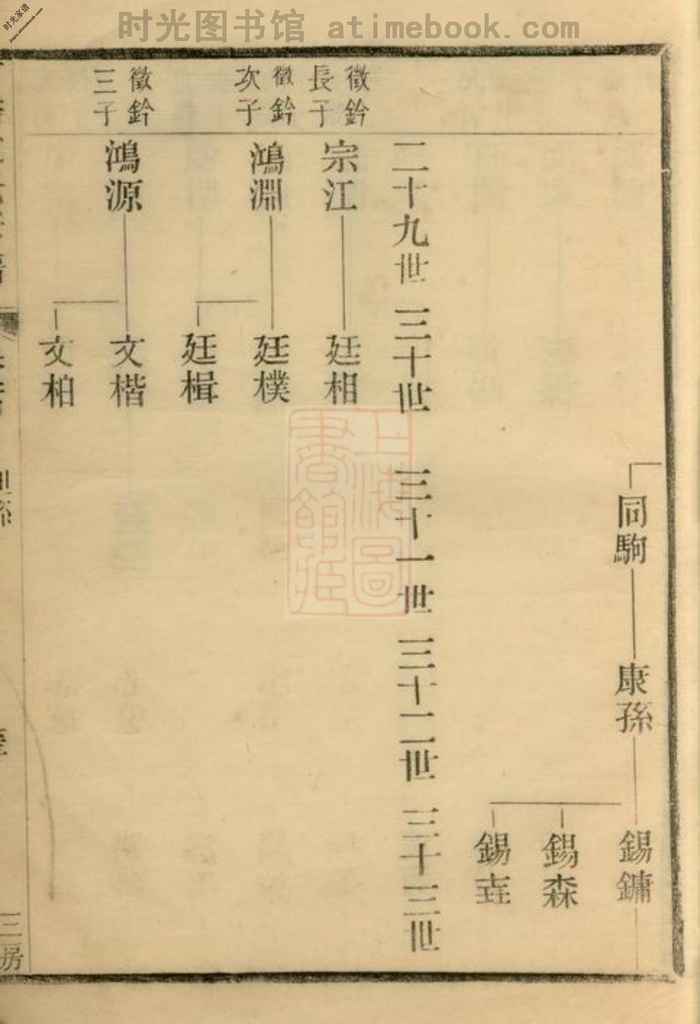 时光图书馆 atimebook.com
时光家谱
同駒
康孫
錫鏞
錫森
錫垚
二十九世 三十世 三十一世 三十二世 三十三世
徵鈐長子
宗江
廷相
徵鈐次子
鴻淵
廷樸
廷楫
徵鈐三子
鴻源
文楷
文柏
三房
上海圖書館藏